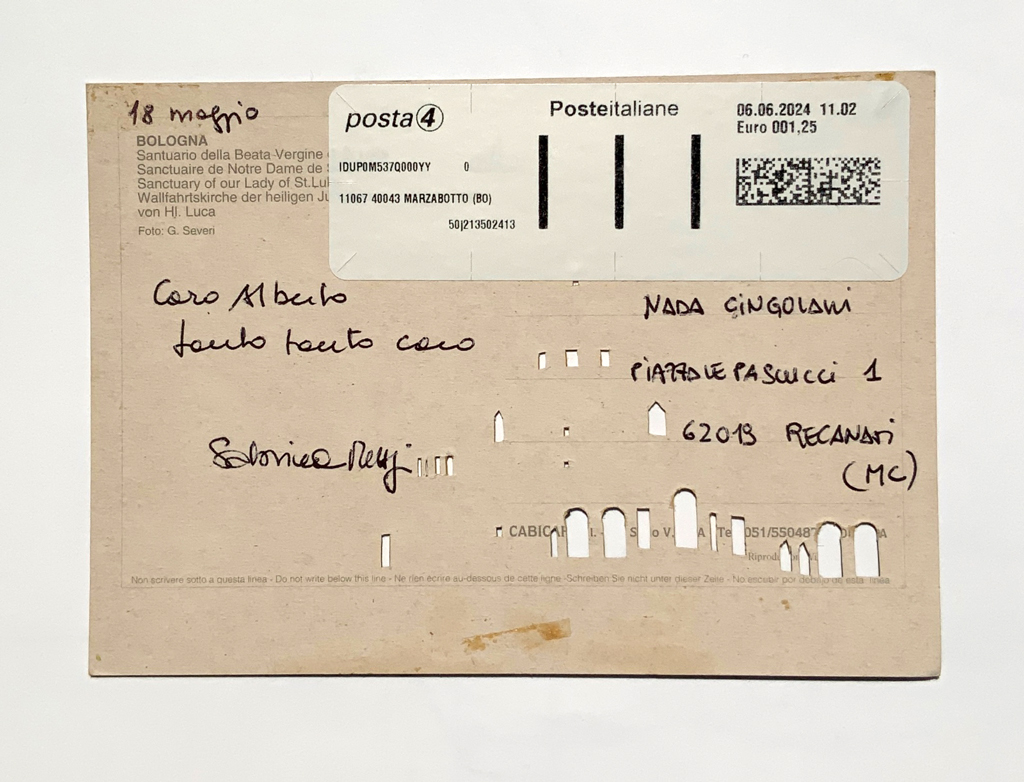 18 maggio
BOLOGNA
Santuario della Beata Vergine
Sanctuaire de Notre Dame de
Sanctuary of our Lady of St.Lu
Wallfahrtskirche der heiligen Ju
von Hl. Luca
Foto: G. Severi
posta 4
Posteitaliane
06.06.2024 11.02
Euro 001,25
IDUP0M537Q000YY 0
11067 40043 MARZABOTTO (BO)
50|213502413
Caro Alberto
tanto tanto caro
NADA CINGOLANI
PIAZZALE PASCUCCI 1
62019 RECANATI
(MC)
CABICAR
051/55048
Riprod
Non scrivere sotto a questa linea - Do not write below this line - Ne rien écrire au-dessous de cette ligne - Schreiben Sie nicht unter dieser Zeile - No escubir por debajo de esta linea